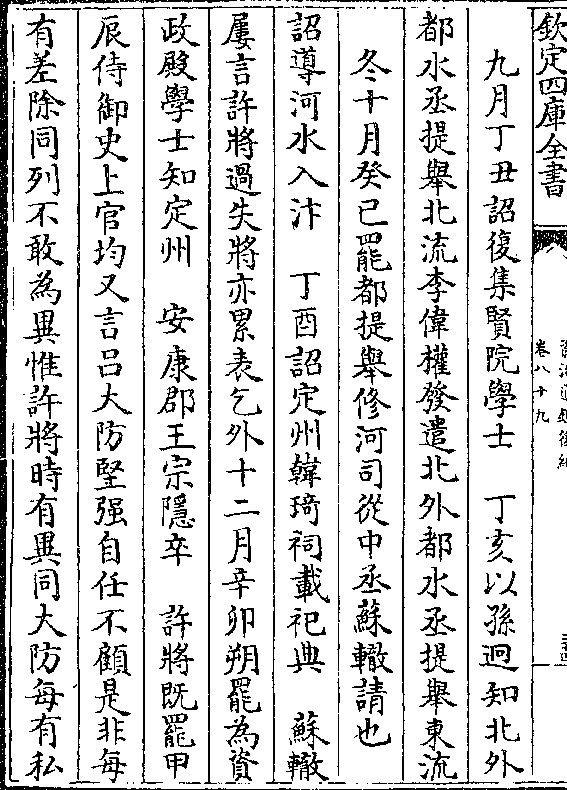 欽定四庫全書
卷八十九
九月丁丑詔復集賢院學士　丁亥以孫迥知北外
都水丞提舉北流李偉權發遣北外都水丞提舉東流
冬十月癸巳罷都提舉修河司從中丞蘇轍請也
詔導河水入汴　丁酉詔定州韓琦祠載祀典　蘇轍
屢言許將過失將亦累表乞外十二月辛卯朔罷為資
政殿學士知定州　安康郡王宗隱卒　許將既罷甲
辰侍御史上官均又言呂大防堅强自任不顧是非每
有差除同列不敢為異惟許將時有異同大防每有私